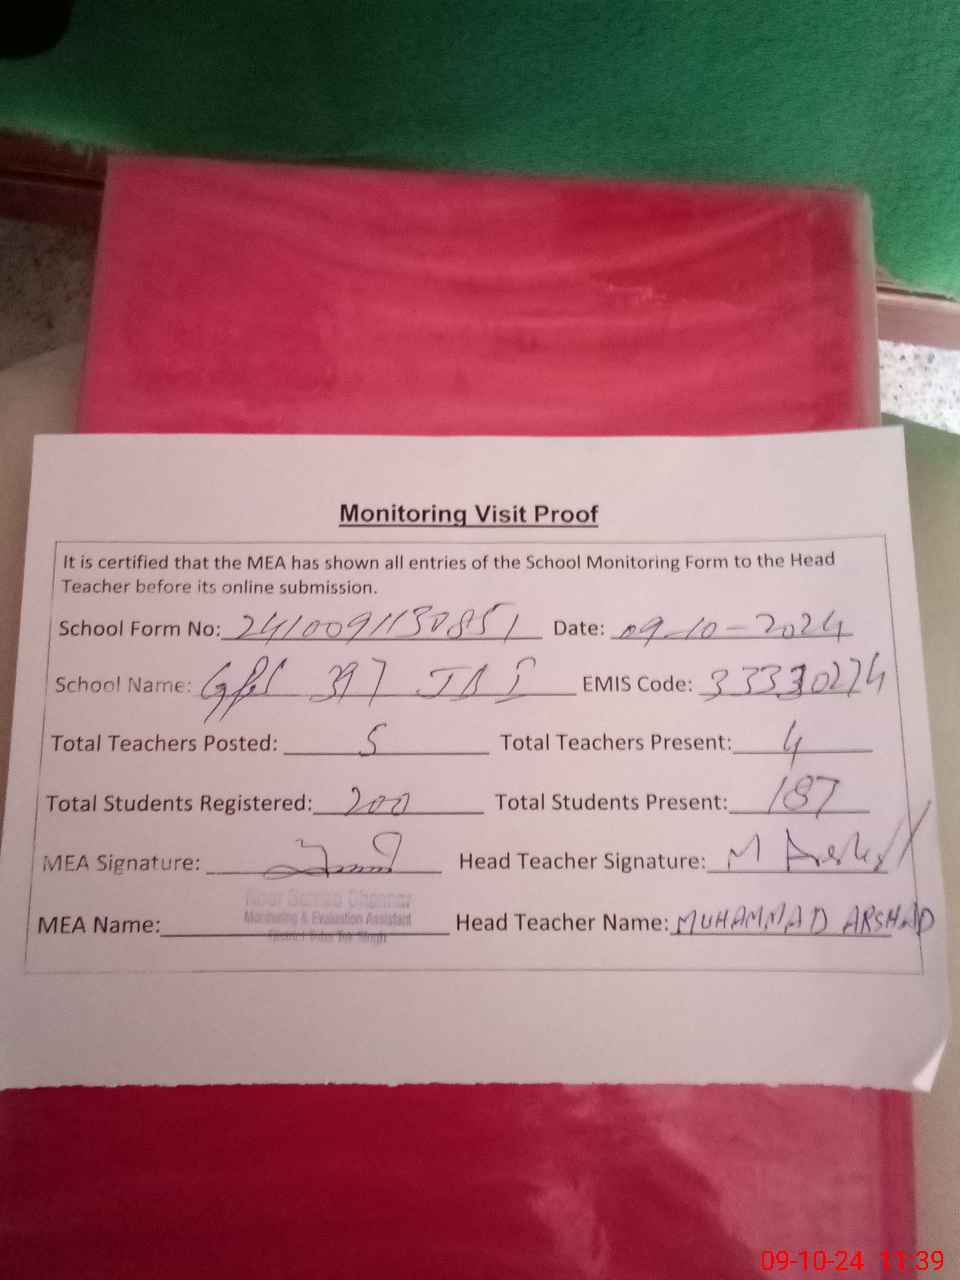 Monitoring Visit Proof
It is certified that the MEA has shown all entries of the School Monitoring Form to the Head
Teacher before its online submission.
School Form No: 2410091130851 Date: 09-10-2024
School Name: GPS 397 JB I EMIS Code: 33330274
Total Teachers Posted: 5 Total Teachers Present: 4
Total Students Registered: 200 Total Students Present: 187
MEA Signature: Head Teacher Signature: M Arshad
Monitoring & Evaluation Assistant
MEA Name: Head Teacher Name: MUHAMMAD ARSHAD
District Toba Tek Singh
09-10-24 11:39